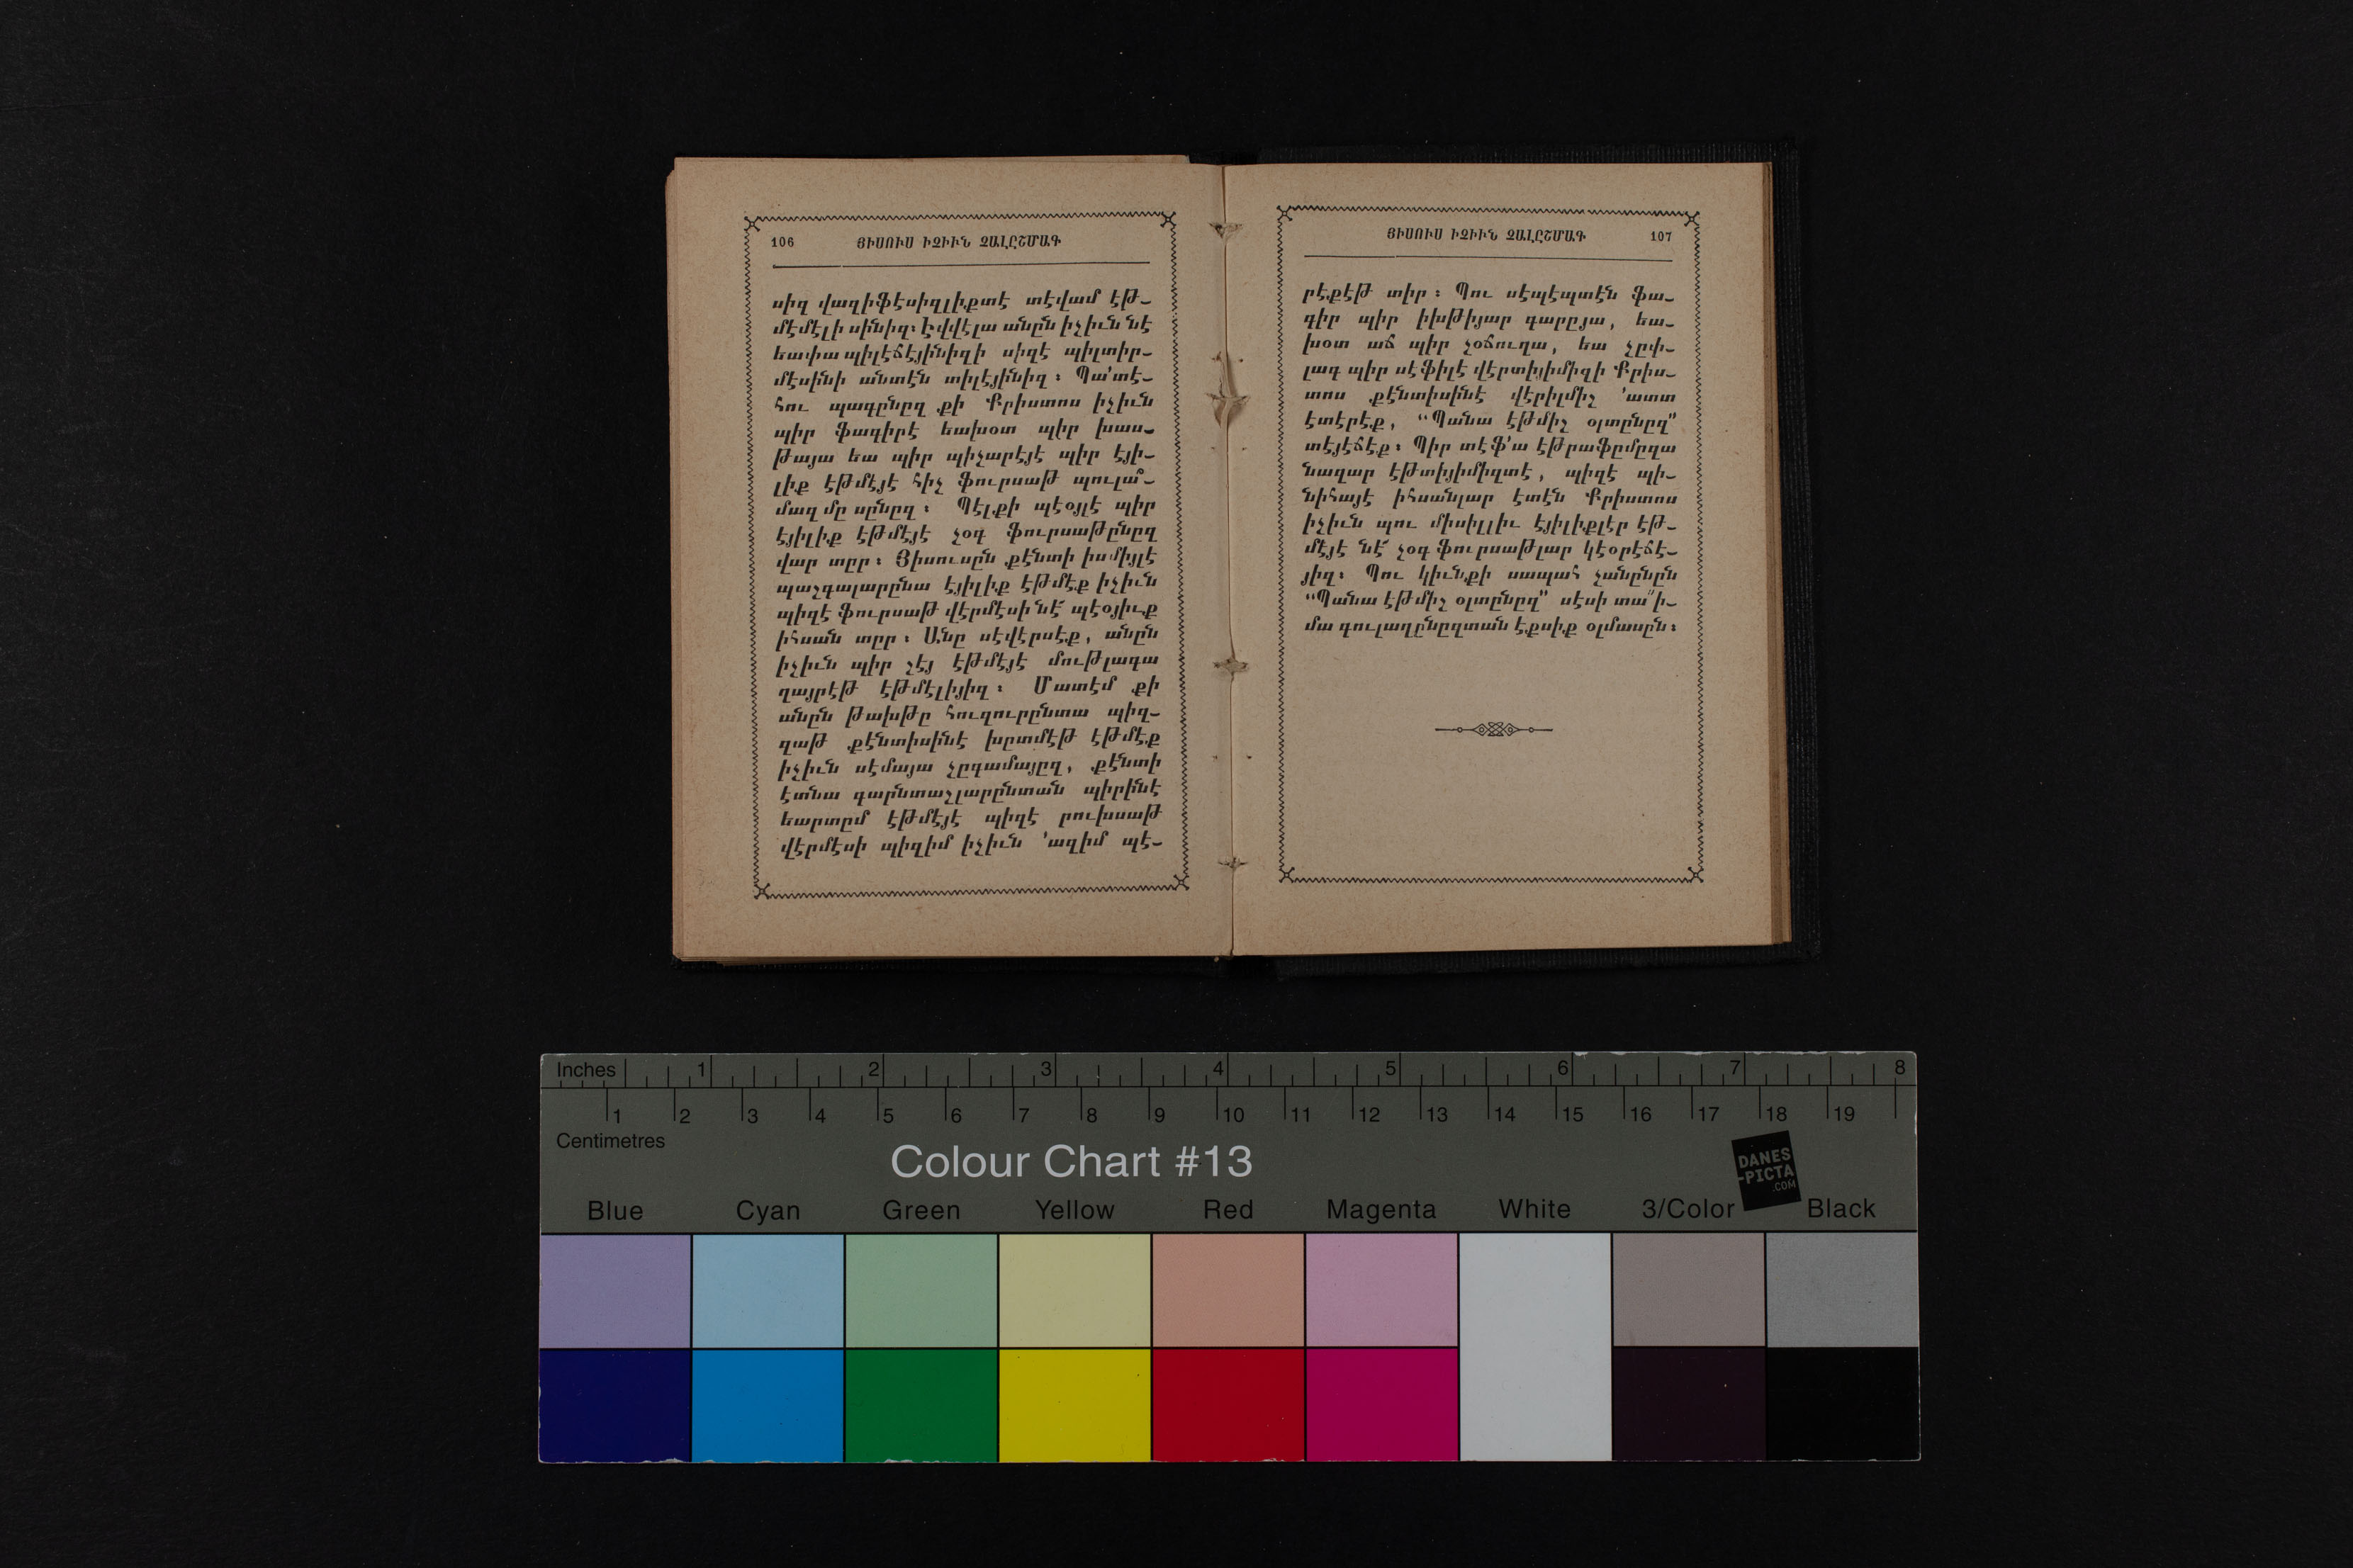 106 ՅԻՍՈՒՍ ԻՉԻՒՆ ՉԱԼԸՇՄԱԳ
սիզ վազիֆէսիզլիքտէ տէվամ էթ-
մէմէլի սինիզ։ Էվվէլա անըն իչիւն նէ
եափա պիլէճէյինիզի սիզէ պիլտիր-
մէսինի անտէն տիլէյինիզ։ Պա՛տէ-
հու պագընըզ քի Քրիստոս իչիւն
պիր ֆագիրէ եախօտ պիր խաս-
թայա եա պիր պիչարէյէ պիր էյի-
լիք էթմէյէ հիչ ֆուրսաթ պուլա՞-
մազ մը սընըզ։ Պէլքի պէօյլէ պիր
էյիլիք էթմէյէ չօգ ֆուրսաթընըզ
վար տըր։ Յիսուսըն քէնտի իսմիյլէ
պաշգալարընա էյիլիք էթմէք իչիւն
պիզէ ֆուրսաթ վէրմէսի նէ՜ պէօյիւք
իհսան տըր։ Անը սէվէրսէք, անըն
իչիւն պիր շէյ էթմէյէ մութլագա
ղայրէթ էթմէլիյիզ։ Մատէմ քի
անըն թախթը հուզուրընտա պիզ-
զաթ քէնտիսինէ խըտմէթ էթմէք
իչիւն սէմայա չըգամայըզ, քէնտի
էտնա գարնտաշլարընտան պիրինէ
եարտըմ էթմէյէ պիզէ րուխսաթ
վէրմէսի պիզիմ իչիւն ՛ազիմ պէ-
ՅԻՍՈՒՍ ԻՉԻՒՆ ՉԱԼԸՇՄԱԳ 107
րէքէթ տիր։ Պու սէպէպտէն ֆա-
գիր պիր իխթիյար գարըյա, եա-
խօտ աճ պիր չօճուղա, եա չըփ-
լագ պիր սէֆիլէ վէրտիյիմիզի Քրիս-
տոս քէնտիսինէ վէրիլմիշ ՛ատտ
էտէրէք, “Պանա էթմիշ օլտընըզ”
տէյէճէք։ Պիր տէֆ՛ա էթրաֆըմըզա
նազար էթտիյիմիզտէ, պիզէ պի-
նիհայէ իհսանլար էտէն Քրիստոս
իչիւն պու միսիլլիւ էյիլիքլէր էթ-
մէյէ նէ՜ չօգ ֆուրսաթլար կէօրէճէ-
յիզ։ Պու կիւնքի սապահ չանընըն
“Պանա էթմիշ օլտընըզ” սէսի տա՛ի-
մա գուլաղընըզտան էքսիք օլմասըն։
Inches 1 2 3 4 5 6 7 8
1 2 3 4 5 6 7 8 9 10 11 12 13 14 15 16 17 18 19
Centimetres
Colour Chart #13
DANES
-PICTA
.COM
Blue Cyan Green Yellow Red Magenta White 3/Color Black